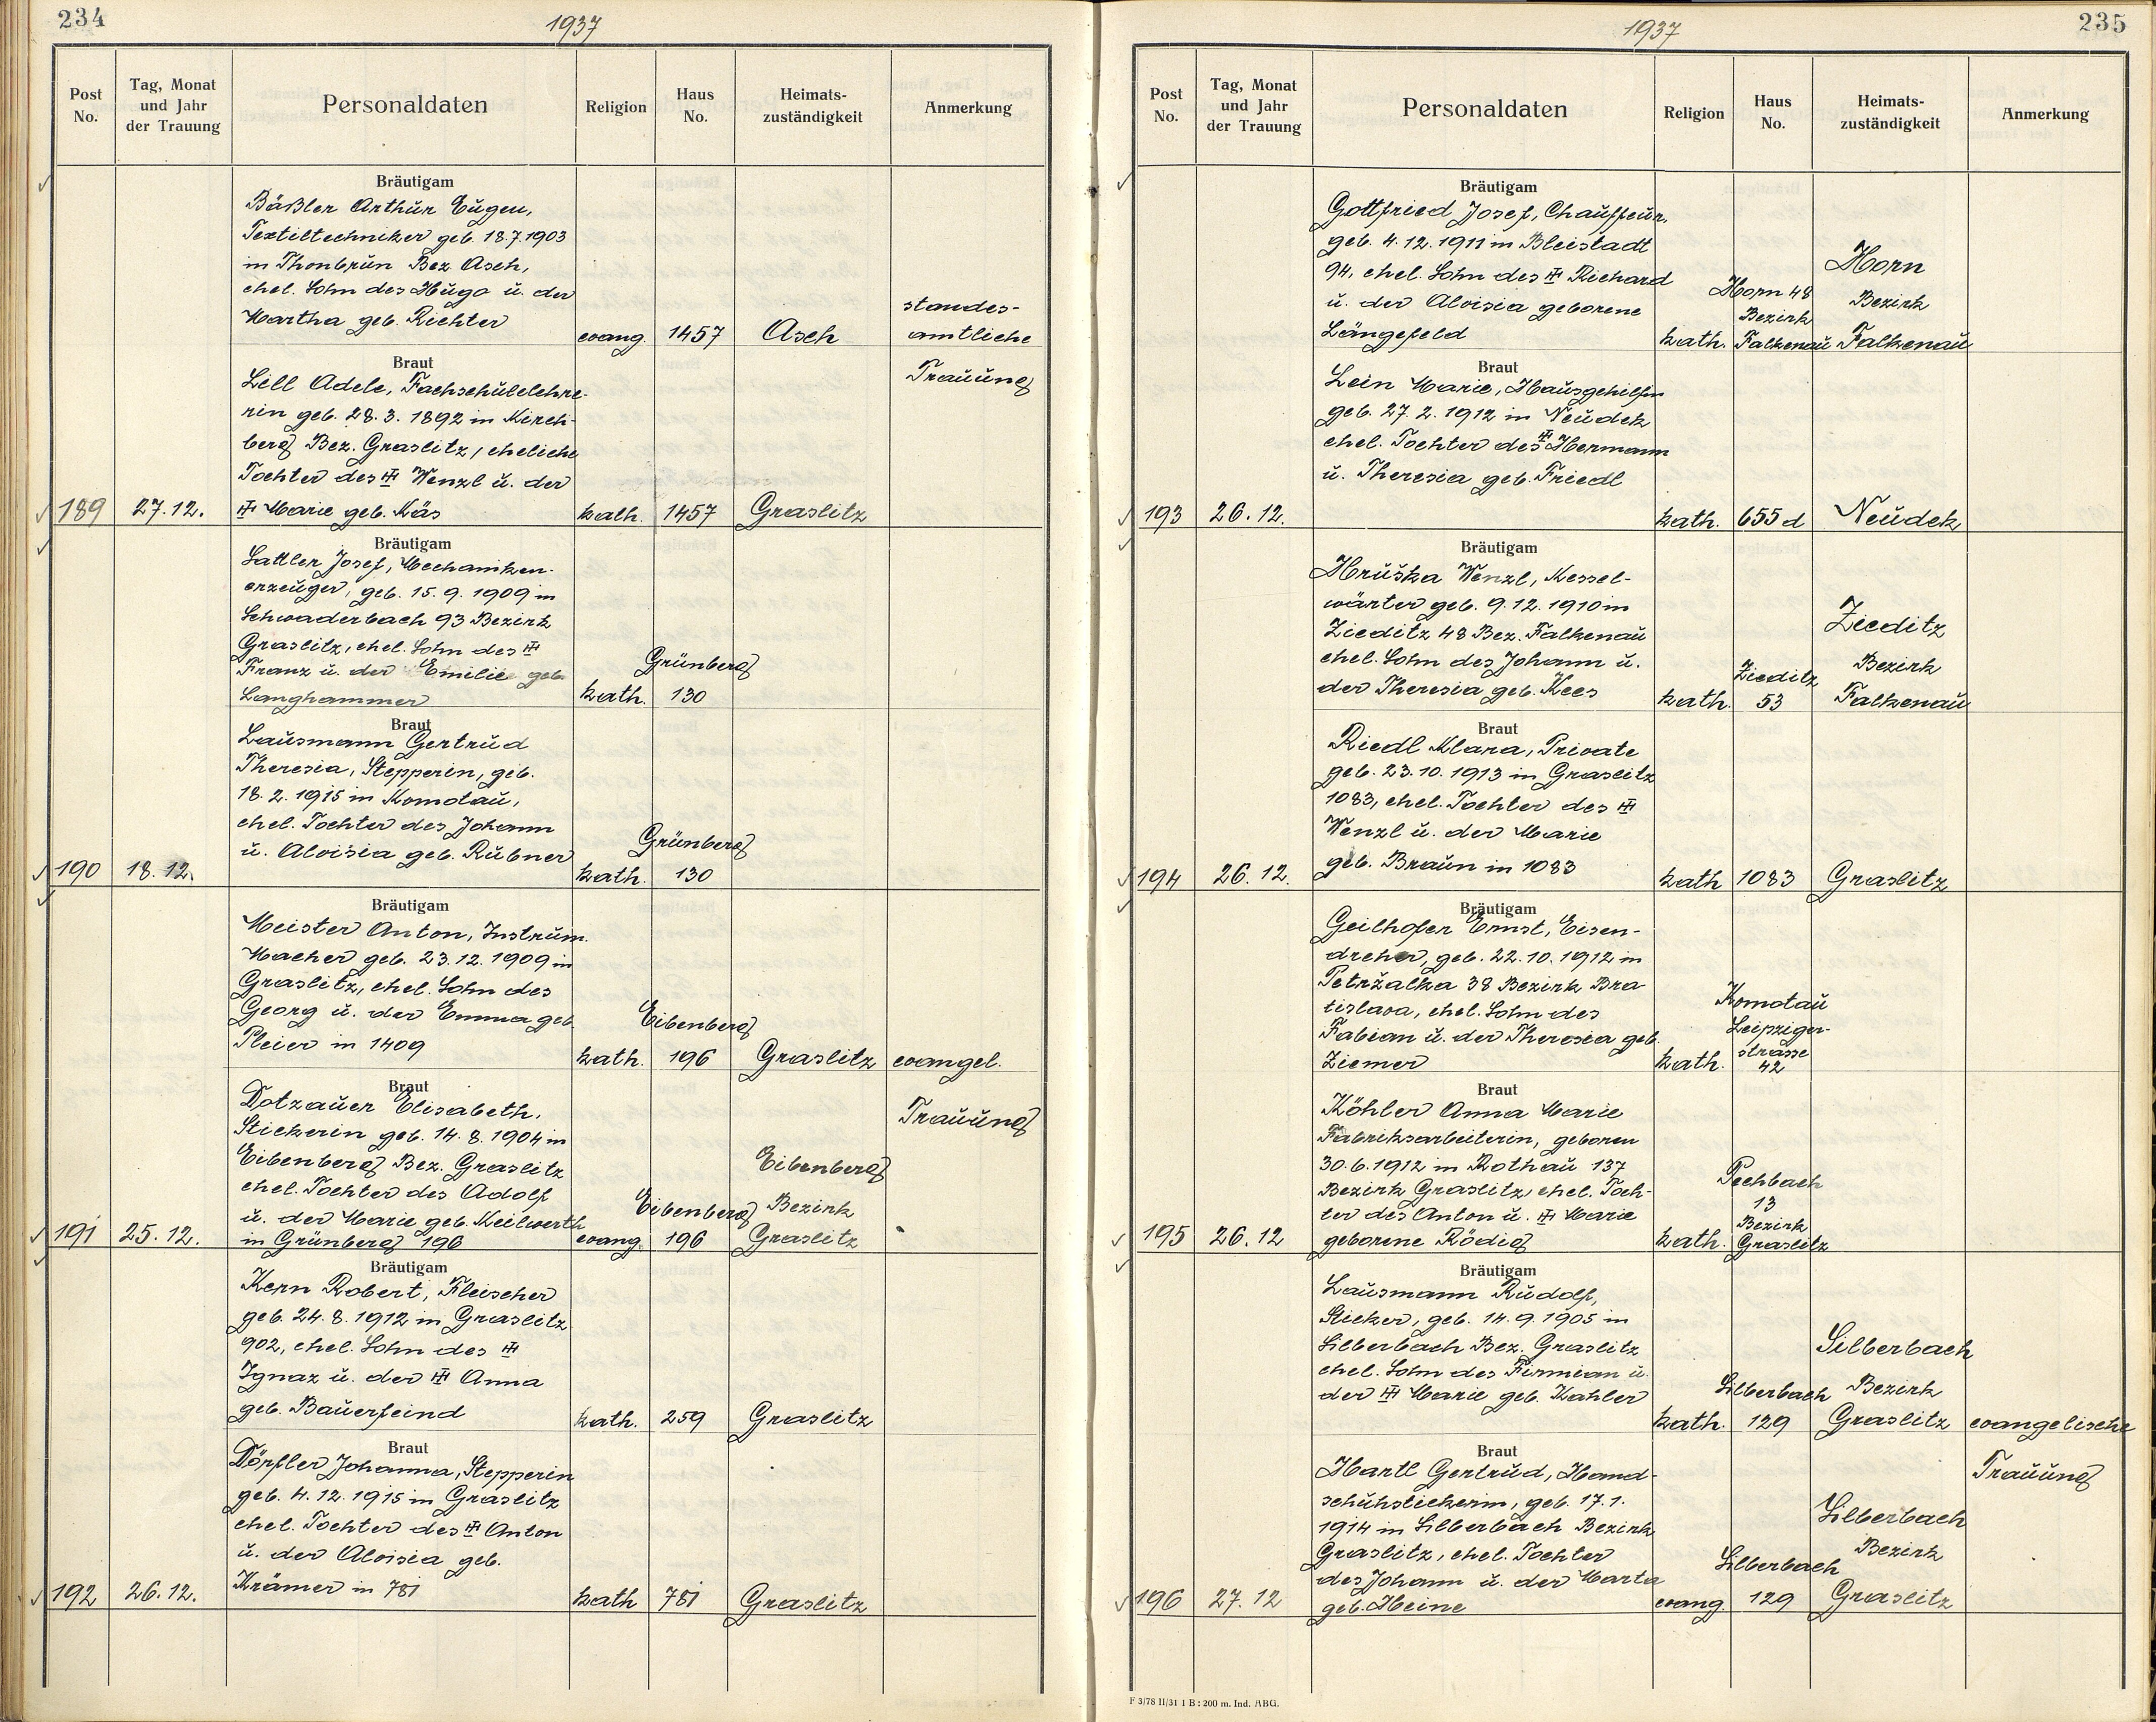 234
1937
Post No.
Tag, Monat und Jahr der Trauung
Personaldaten
Religion
Haus No.
Heimats-zuständigkeit
Anmerkung
Bräutigam
Bäßler Arthur Eugen,
Textiltechniker geb. 18.7.1903
in Thonbrun Bez. Asch,
ehel. Sohn des Hugo u. der
Martha geb. Richter
evang. 1457 Asch
standes-
amtliche
Trauung
Braut
Lill Adele, Fachschullehre-
rin geb. 28.3.1892 in Kirch-
berg Bez. Graslitz, eheliche
Tochter des Wenzl u. der
189 27.12. Marie geb. Käs kath. 1457 Graslitz
Bräutigam
Sattler Josef, Mechaniken-
erzeuger, geb. 15.9.1909 in
Schwaderbach 93 Bezirk
Graslitz, ehel. Sohn des
Franz u. der Emilie geb.
Langhammer
Grünberg
kath. 130
Braut
Lausmann Gertrud
Theresia, Stepperin, geb.
18.2.1915 in Komotau,
ehel. Tochter des Johann
u. Aloisia geb. Rubner
Grünberg
190 18.12. kath. 130
Bräutigam
Meister Anton, Instrum.
Macher geb. 23.12.1909 in
Graslitz, ehel. Sohn des
Georg u. der Emma geb.
Pleier in 1409
Eibenberg
kath. 196 Graslitz evangel.
Trauung
Braut
Dotzauer Elisabeth,
Stickerin geb. 14.8.1904 in
Eibenberg Bez. Graslitz
ehel. Tochter des Adolf
u. der Marie geb. Keilwerth
in Grünberg 196
Eibenberg
Eibenberg Bezirk
191 25.12. evang. 196 Graslitz
Bräutigam
Kern Robert, Fleischer
geb. 24.8.1912 in Graslitz
902, ehel. Sohn des
Ignaz u. der Anna
geb. Bauerfeind
kath. 259 Graslitz
Braut
Dörfler Johanna, Stepperin
geb. 4.12.1915 in Graslitz
ehel. Tochter des Anton
u. der Aloisia geb.
Krämer in 781
192 26.12. kath 781 Graslitz
235
1937
Post No.
Tag, Monat und Jahr der Trauung
Personaldaten
Religion
Haus No.
Heimats-zuständigkeit
Anmerkung
Bräutigam
Gottfried Josef, Chauffeur,
geb. 4.12.1911 in Bleistadt
94, ehel. Sohn des Richard
u. der Aloisia geborene
Längefeld
kath.
Horn 48
Bezirk
Falkenau
Horn
Bezirk
Falkenau
Braut
Lein Marie, Hausgehilfin
geb. 27.2.1912 in Neudek
ehel. Tochter des Hermann
u. Theresia geb. Friedl
193 26.12. kath. 655d Neudek
Bräutigam
Hruška Wenzl, Kessel-
wärter geb. 9.12.1910 in
Zieditz 48 Bez. Falkenau
ehel. Sohn des Johann u.
der Theresia geb. Kees
kath.
Zieditz
53
Zieditz
Bezirk
Falkenau
Braut
Riedl Klara, Private
geb. 23.10.1913 in Graslitz
1083, ehel. Tochter des
Wenzl u. der Marie
geb. Braun in 1083
194 26.12. kath 1083 Graslitz
Bräutigam
Geilhofer Ernst, Eisen-
dreher, geb. 22.10.1912 in
Petržalka 38 Bezirk Bra-
tislava, ehel. Sohn des
Fabian u. der Theresia geb.
Ziemer
kath.
Komotau
Leipziger-
strasse
42
Braut
Köhler Anna Marie
Fabriksarbeiterin, geboren
30.6.1912 in Rothau 137
Bezirk Graslitz, ehel. Toch-
ter des Anton u. Marie
geborene Rödig
195 26.12 kath.
Pechbach
13
Bezirk
Graslitz
Bräutigam
Lausmann Rudolf,
Sticker, geb. 14.9.1905 in
Silberbach Bez. Graslitz
ehel. Sohn des Firmian u.
der Marie geb. Kahler
Silberbach
Silberbach Bezirk
kath. 129 Graslitz evangelische
Trauung
Braut
Hartl Gertrud, Hand-
schuhstickerin, geb. 17.1.
1914 in Silberbach Bezirk
Graslitz, ehel. Tochter
des Johann u. der Marta
geb. Heine
Silberbach
Bezirk
Silberbach
196 27.12 evang. 129 Graslitz
F 3/78 II/31 I B : 200 m. Ind. ABG.